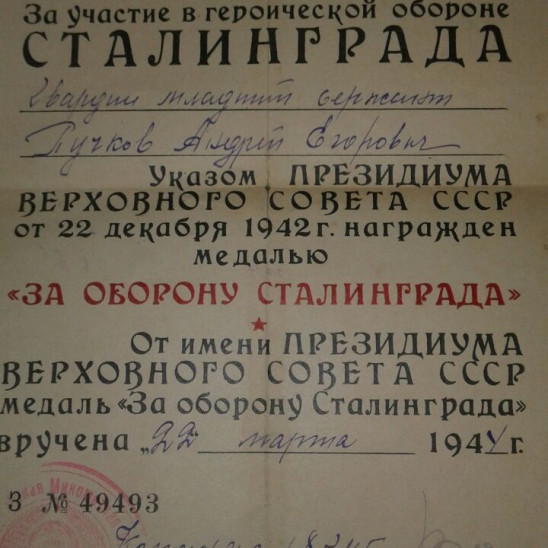 За участие в героической обороне
СТАЛИНГРАДА
Гвардии младший сержант
Пучков Андрей Егорович
Указом ПРЕЗИДИУМА
ВЕРХОВНОГО СОВЕТА СССР
от 22 декабря 1942 г. награжден
медалью
«ЗА ОБОРОНУ СТАЛИНГРАДА»
От имени ПРЕЗИДИУМА
ВЕРХОВНОГО СОВЕТА СССР
медаль «За оборону Сталинграда»
вручена „22" марта 1944 г.
З № 49493